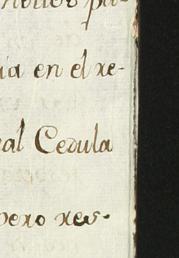 pa-
ia en el re-
al Cedula
pero res-